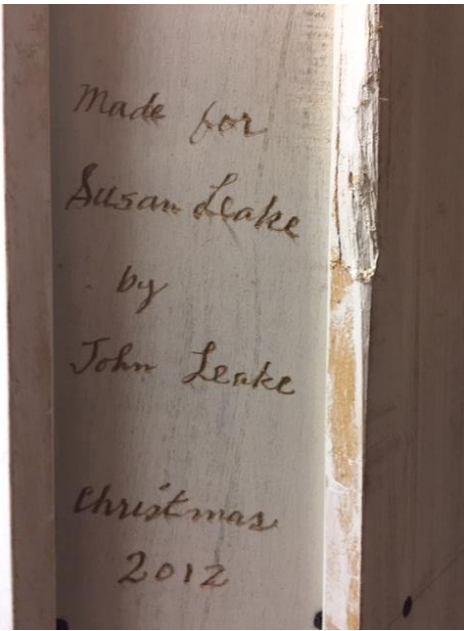 Made for
Susan Leake
by
John Leake
Christmas
2012